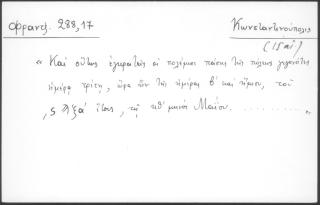 Φραντζ. 288,17
Κωνσταντινούπολις
(ἱσαὶ)
« Καὶ οὕτως ἐγκρατεῖς οἱ πολέμιοι πάσης τῆς πόλεως γεγονότες
ἡμέρᾳ τρίτῃ, ὥρα ἦν τῆς ἡμέρας β' καὶ ἥμισυ, τοῦ
,ςϡξα' ἔτους, τῇ κθ' μηνὸς Μαΐου. .........